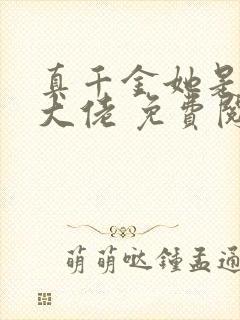 真千金她是
大佬 免費閱
萌萌哒鍾孟通